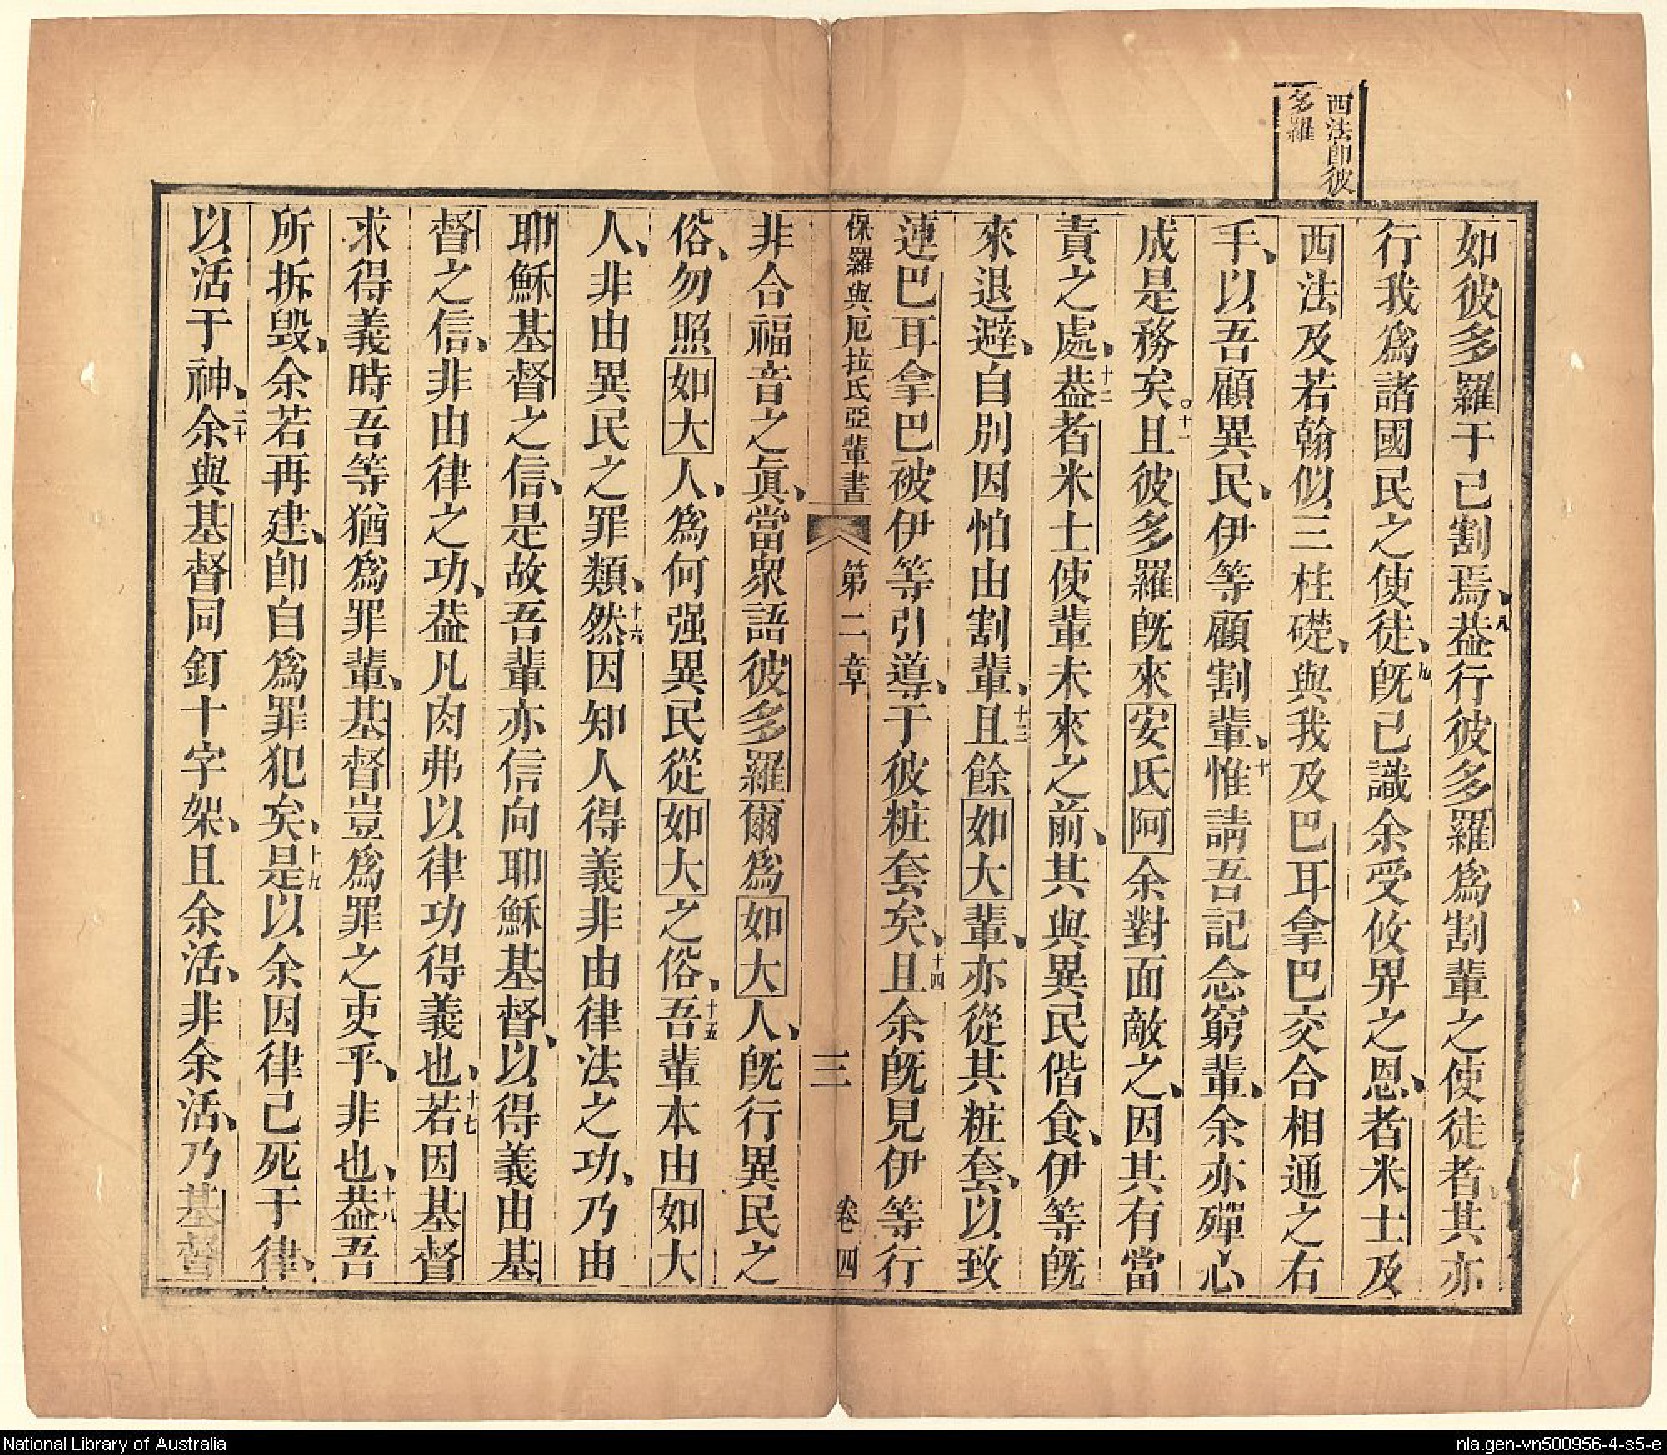 西法即彼
多羅
如彼多羅干已割焉、八葢行彼多羅爲割輩之使徒者其亦
行我爲諸國民之使徒、九旣已識余受攸界之恩、者米士及
西法及若翰似三柱礎、與我及巴耳拿巴交合相通之右
手、以吾顧異民、伊等顧割輩、十惟請吾記念窮輩、余亦殫心
成是務矣。十一且彼多羅旣來安氏阿余對面敵之、因其有當
責之處、十二葢者米士使輩未來之前、其與異民偕食、伊等旣
來退避、自別因怕由割輩、十三且餘如大輩、亦從其粧套、以致
連巴耳拿巴被伊等引導、于彼粧套矣、十四且余旣見伊等行
保羅與厄拉氏亞輩書 第二章 三 卷四
非合福音之眞、當衆語彼多羅爾爲如大人、旣行異民之
俗、勿照如大人、爲何强異民從如大之俗、十五吾輩本由如大
人、非由異民之罪類、十六然因知人得義非由律法之功、乃由
耶穌基督之信、是故吾輩亦信向耶穌基督、以得義由基
督之信、非由律之功、葢凡肉弗以律功得義也、十七若因基督
求得義時吾等猶爲罪輩、基督豈爲罪之吏乎、非也、十八葢吾
所拆毀、余若再建、卽自爲罪犯矣、十九是以余因律已死于律、
以活于神、二十余與基督同釘十字架、且余活、非余活、乃基督
National Library of Australia
nla.gen-vn500956-4-s5-e